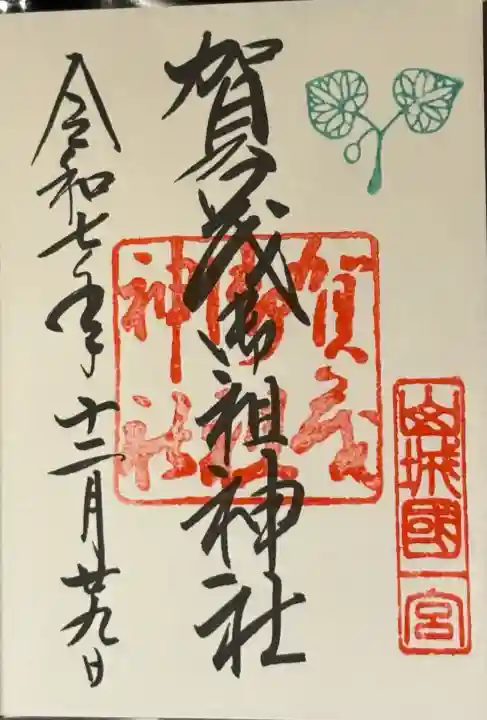 山城國一宮
賀茂御祖神社
賀茂御祖神社
令和七年十二月廿九日